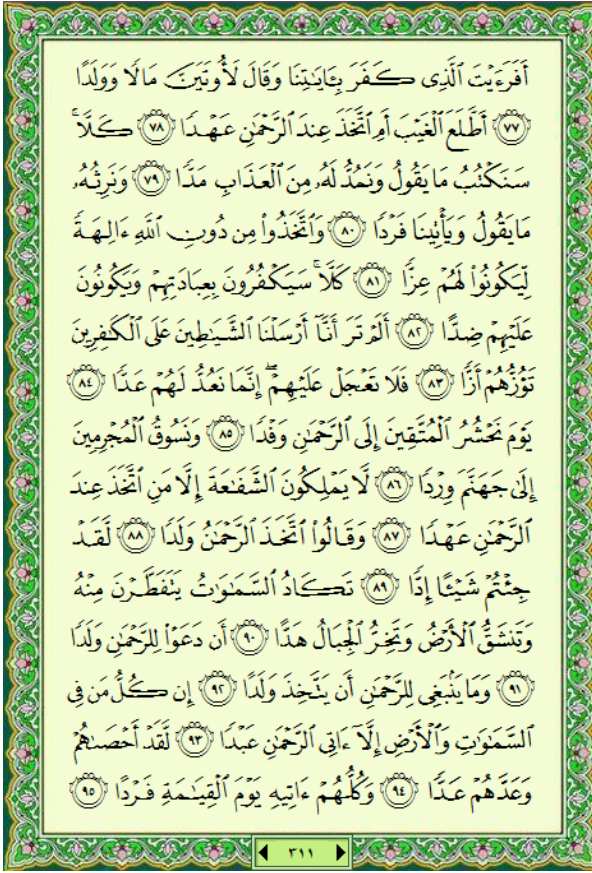 أَفَرَءَيْتَ ٱلَّذِى كَفَرَ بِـَٔايَـٰتِنَا وَقَالَ لَأُوتَيَنَّ مَالًا وَوَلَدًا
﴿٧٧﴾ أَطَّلَعَ ٱلْغَيْبَ أَمِ ٱتَّخَذَ عِندَ ٱلرَّحْمَـٰنِ عَهْدًا ﴿٧٨﴾ كَلَّا ۚ
سَنَكْتُبُ مَا يَقُولُ وَنَمُدُّ لَهُۥ مِنَ ٱلْعَذَابِ مَدًّا ﴿٧٩﴾ وَنَرِثُهُۥ
مَا يَقُولُ وَيَأْتِينَا فَرْدًا ﴿٨٠﴾ وَٱتَّخَذُوا۟ مِن دُونِ ٱللَّهِ ءَالِهَةً
لِّيَكُونُوا۟ لَهُمْ عِزًّا ﴿٨١﴾ كَلَّا ۚ سَيَكْفُرُونَ بِعِبَادَتِهِمْ وَيَكُونُونَ
عَلَيْهِمْ ضِدًّا ﴿٨٢﴾ أَلَمْ تَرَ أَنَّآ أَرْسَلْنَا ٱلشَّيَـٰطِينَ عَلَى ٱلْكَـٰفِرِينَ
تَؤُزُّهُمْ أَزًّا ﴿٨٣﴾ فَلَا تَعْجَلْ عَلَيْهِمْ ۖ إِنَّمَا نَعُدُّ لَهُمْ عَدًّا ﴿٨٤﴾
يَوْمَ نَحْشُرُ ٱلْمُتَّقِينَ إِلَى ٱلرَّحْمَـٰنِ وَفْدًا ﴿٨٥﴾ وَنَسُوقُ ٱلْمُجْرِمِينَ
إِلَىٰ جَهَنَّمَ وِرْدًا ﴿٨٦﴾ لَّا يَمْلِكُونَ ٱلشَّفَـٰعَةَ إِلَّا مَنِ ٱتَّخَذَ عِندَ
ٱلرَّحْمَـٰنِ عَهْدًا ﴿٨٧﴾ وَقَالُوا۟ ٱتَّخَذَ ٱلرَّحْمَـٰنُ وَلَدًا ﴿٨٨﴾ لَّقَدْ
جِئْتُمْ شَيْـًٔا إِدًّا ﴿٨٩﴾ تَكَادُ ٱلسَّمَـٰوَٰتُ يَتَفَطَّرْنَ مِنْهُ
وَتَنشَقُّ ٱلْأَرْضُ وَتَخِرُّ ٱلْجِبَالُ هَدًّا ﴿٩٠﴾ أَن دَعَوْا۟ لِلرَّحْمَـٰنِ وَلَدًا
﴿٩١﴾ وَمَا يَنۢبَغِى لِلرَّحْمَـٰنِ أَن يَتَّخِذَ وَلَدًا ﴿٩٢﴾ إِن كُلُّ مَن فِى
ٱلسَّمَـٰوَٰتِ وَٱلْأَرْضِ إِلَّآ ءَاتِى ٱلرَّحْمَـٰنِ عَبْدًا ﴿٩٣﴾ لَّقَدْ أَحْصَىٰهُمْ
وَعَدَّهُمْ عَدًّا ﴿٩٤﴾ وَكُلُّهُمْ ءَاتِيهِ يَوْمَ ٱلْقِيَـٰمَةِ فَرْدًا ﴿٩٥﴾
٣١١